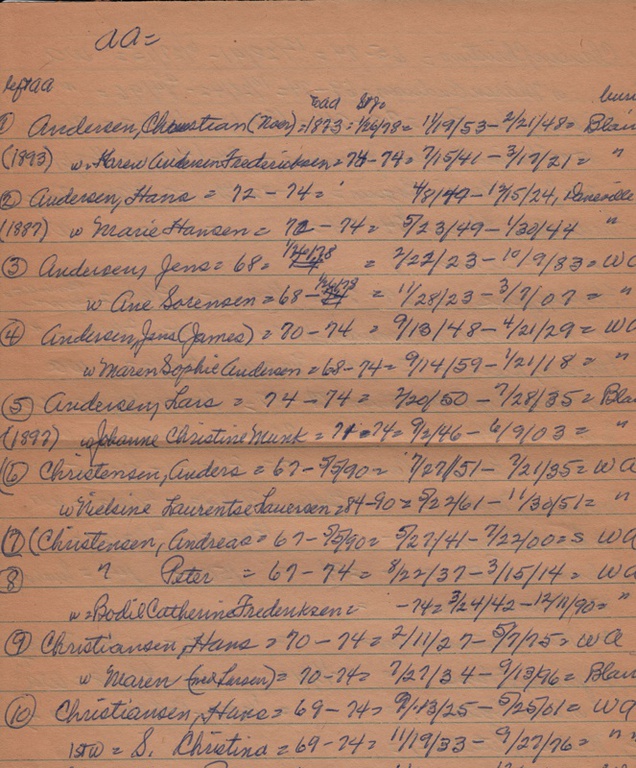 aa=
left aa
bur
① Andersen, Christian (Noer) = 1873 = 1/26/78 = 11/19/53 - 2/21/48 = Blair
(1893) w. Karen Andersen Frederiksen = 74 - 74 = 7/15/41 - 3/17/21 = "
② Andersen, Hans = 72 - 74 = 4/8/49 - 12/15/24, Daneville
(1887) w Marie Hansen = 72 - 74 = 5/23/49 - 1/30/44 "
③ Andersen, Jens = 68 = 1/26/78 = 2/22/23 - 10/9/83 = WA
w Ane Sorensen = 68 - 1/26/78 = 11/28/23 - 3/7/07 = "
④ Andersen, Jens (James) = 70 - 74 = 9/13/48 - 4/21/29 = WA
w Maren Sophie Andersen = 68 - 74 = 9/14/59 - 1/21/18 = "
⑤ Andersen, Lars = 74 - 74 = 7/20/50 - 7/28/35 = Blai
(1897) w Johanne Christine Munk = 71 - 74 = 9/2/46 - 6/9/03 = "
⑥ Christensen, Anders = 67 - 5/5/90 = 7/27/51 - 7/21/35 = WA
w Nielsine Laurentse Lauersen = 84 - 90 = 5/22/61 - 11/30/51 = "
⑦ (Christensen, Andreas = 67 - 5/5/90 = 5/27/41 - 7/22/00 = s WA
⑧ " Peter = 67 - 74 = 8/22/37 - 3/15/14 = WA
w = Bodil Catherine Frederiksen = -74 = 3/24/42 - 12/11/90 = "
⑨ Christiansen, Hans = 70 - 74 = 2/11/27 - 5/7/75 = WA
w Maren (neé Larsen) = 70 - 74 = 7/27/34 - 9/13/96 = Blair
⑩ Christiansen, Hans = 69 - 74 = 9/13/25 - 5/25/01 = WA
1st w = S. Christina = 69 - 74 = 11/19/33 - 9/27/76 = " "